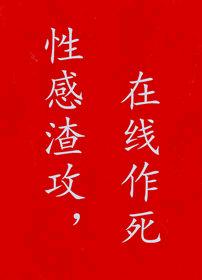 性感渣攻，
在线作死